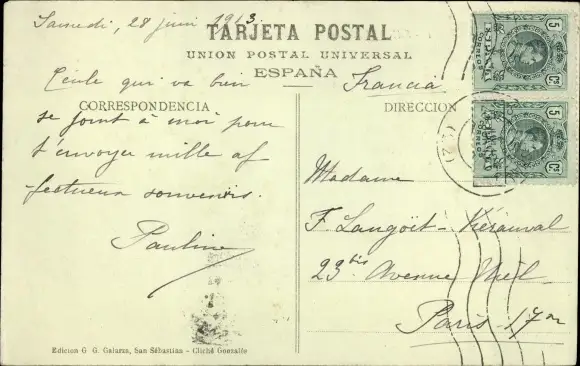 Samedi, 28 juin 1913
TARJETA POSTAL
UNION POSTAL UNIVERSAL
ESPAÑA
CORRESPONDENCIA
DIRECCION
Francia
Cécile qui va bien
se joint à moi pour
t'envoyer mille af
fectueux souvenirs.
Pauline
Madame
F. Langöit-Kérainval
23 bis Avenue Niel
Paris 17me
5 Cs
CORREOS
5 Cs
CORREOS
Edicion G. G. Galarza, San Sébastian - Cliché González